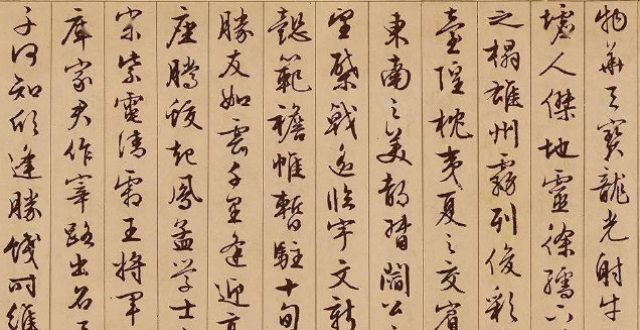 物華天寶龍光射牛
墟人傑地靈徐孺下
之榻雄州霧列俊彩
臺隍枕夷夏之交賓
東南之美都督閻公
望棨戟遙臨宇文新
懿範襜帷暫駐十旬
勝友如雲千里逢迎高
座騰蛟起鳳孟學士
宗紫電清霜王將軍
庫家君作宰路出名
子何知逢勝餞時維